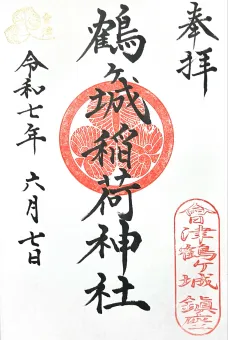 奉拝
鶴ヶ城稲荷神社
令和七年 六月七日
會津鶴ヶ城 鎮